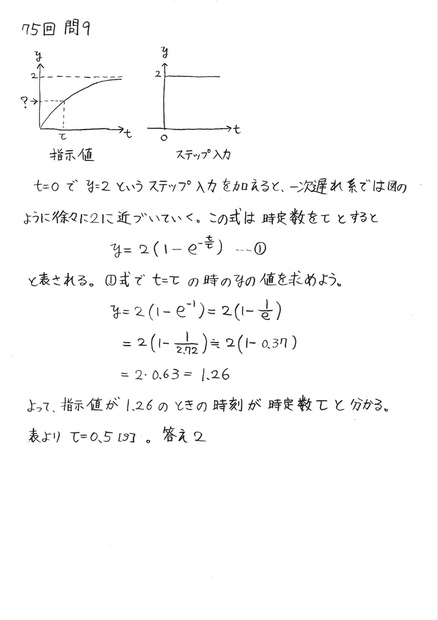 75回 問9
y
2
?→
τ
t
指示値
y
2
0
t
ステップ入力
t=0 で y=2 というステップ入力を加えると、一次遅れ系では図の
ように徐々に2に近づいていく。この式は 時定数をτとすると
y = 2(1 - e^{-t/τ}) ---①
と表される。①式で t=τ の時のyの値を求めよう。
y = 2(1 - e^{-1}) = 2(1 - 1/e)
= 2(1 - 1/2.72) ≒ 2(1 - 0.37)
= 2・0.63 = 1.26
よって、指示値が 1.26 のときの時刻が 時定数τと分かる。
表より τ=0.5[s]。答え2